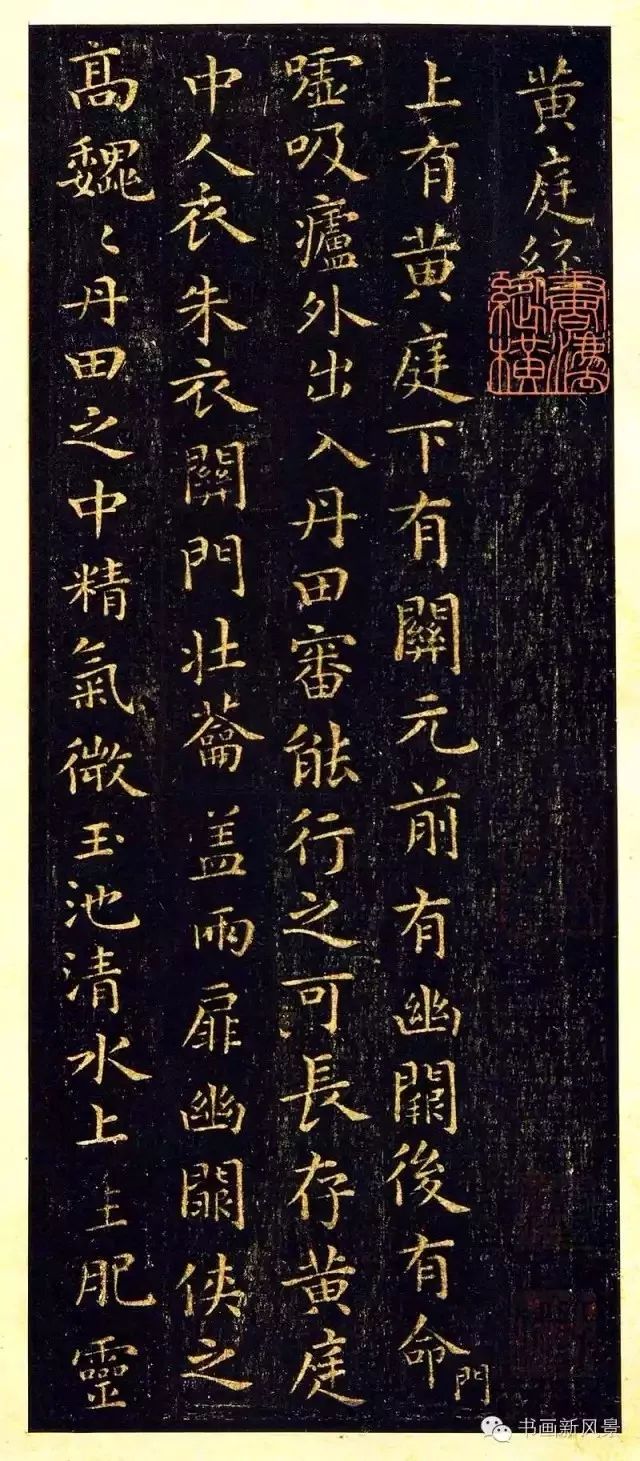 黄庭經
上有黄庭下有關元前有幽闕後有命門
嘘吸廬外出入丹田審能行之可長存黄庭
中人衣朱衣關門壮蘥盖兩扉幽闕俠之
高魏〻丹田之中精氣微玉池清水上生肥靈
书画新风景